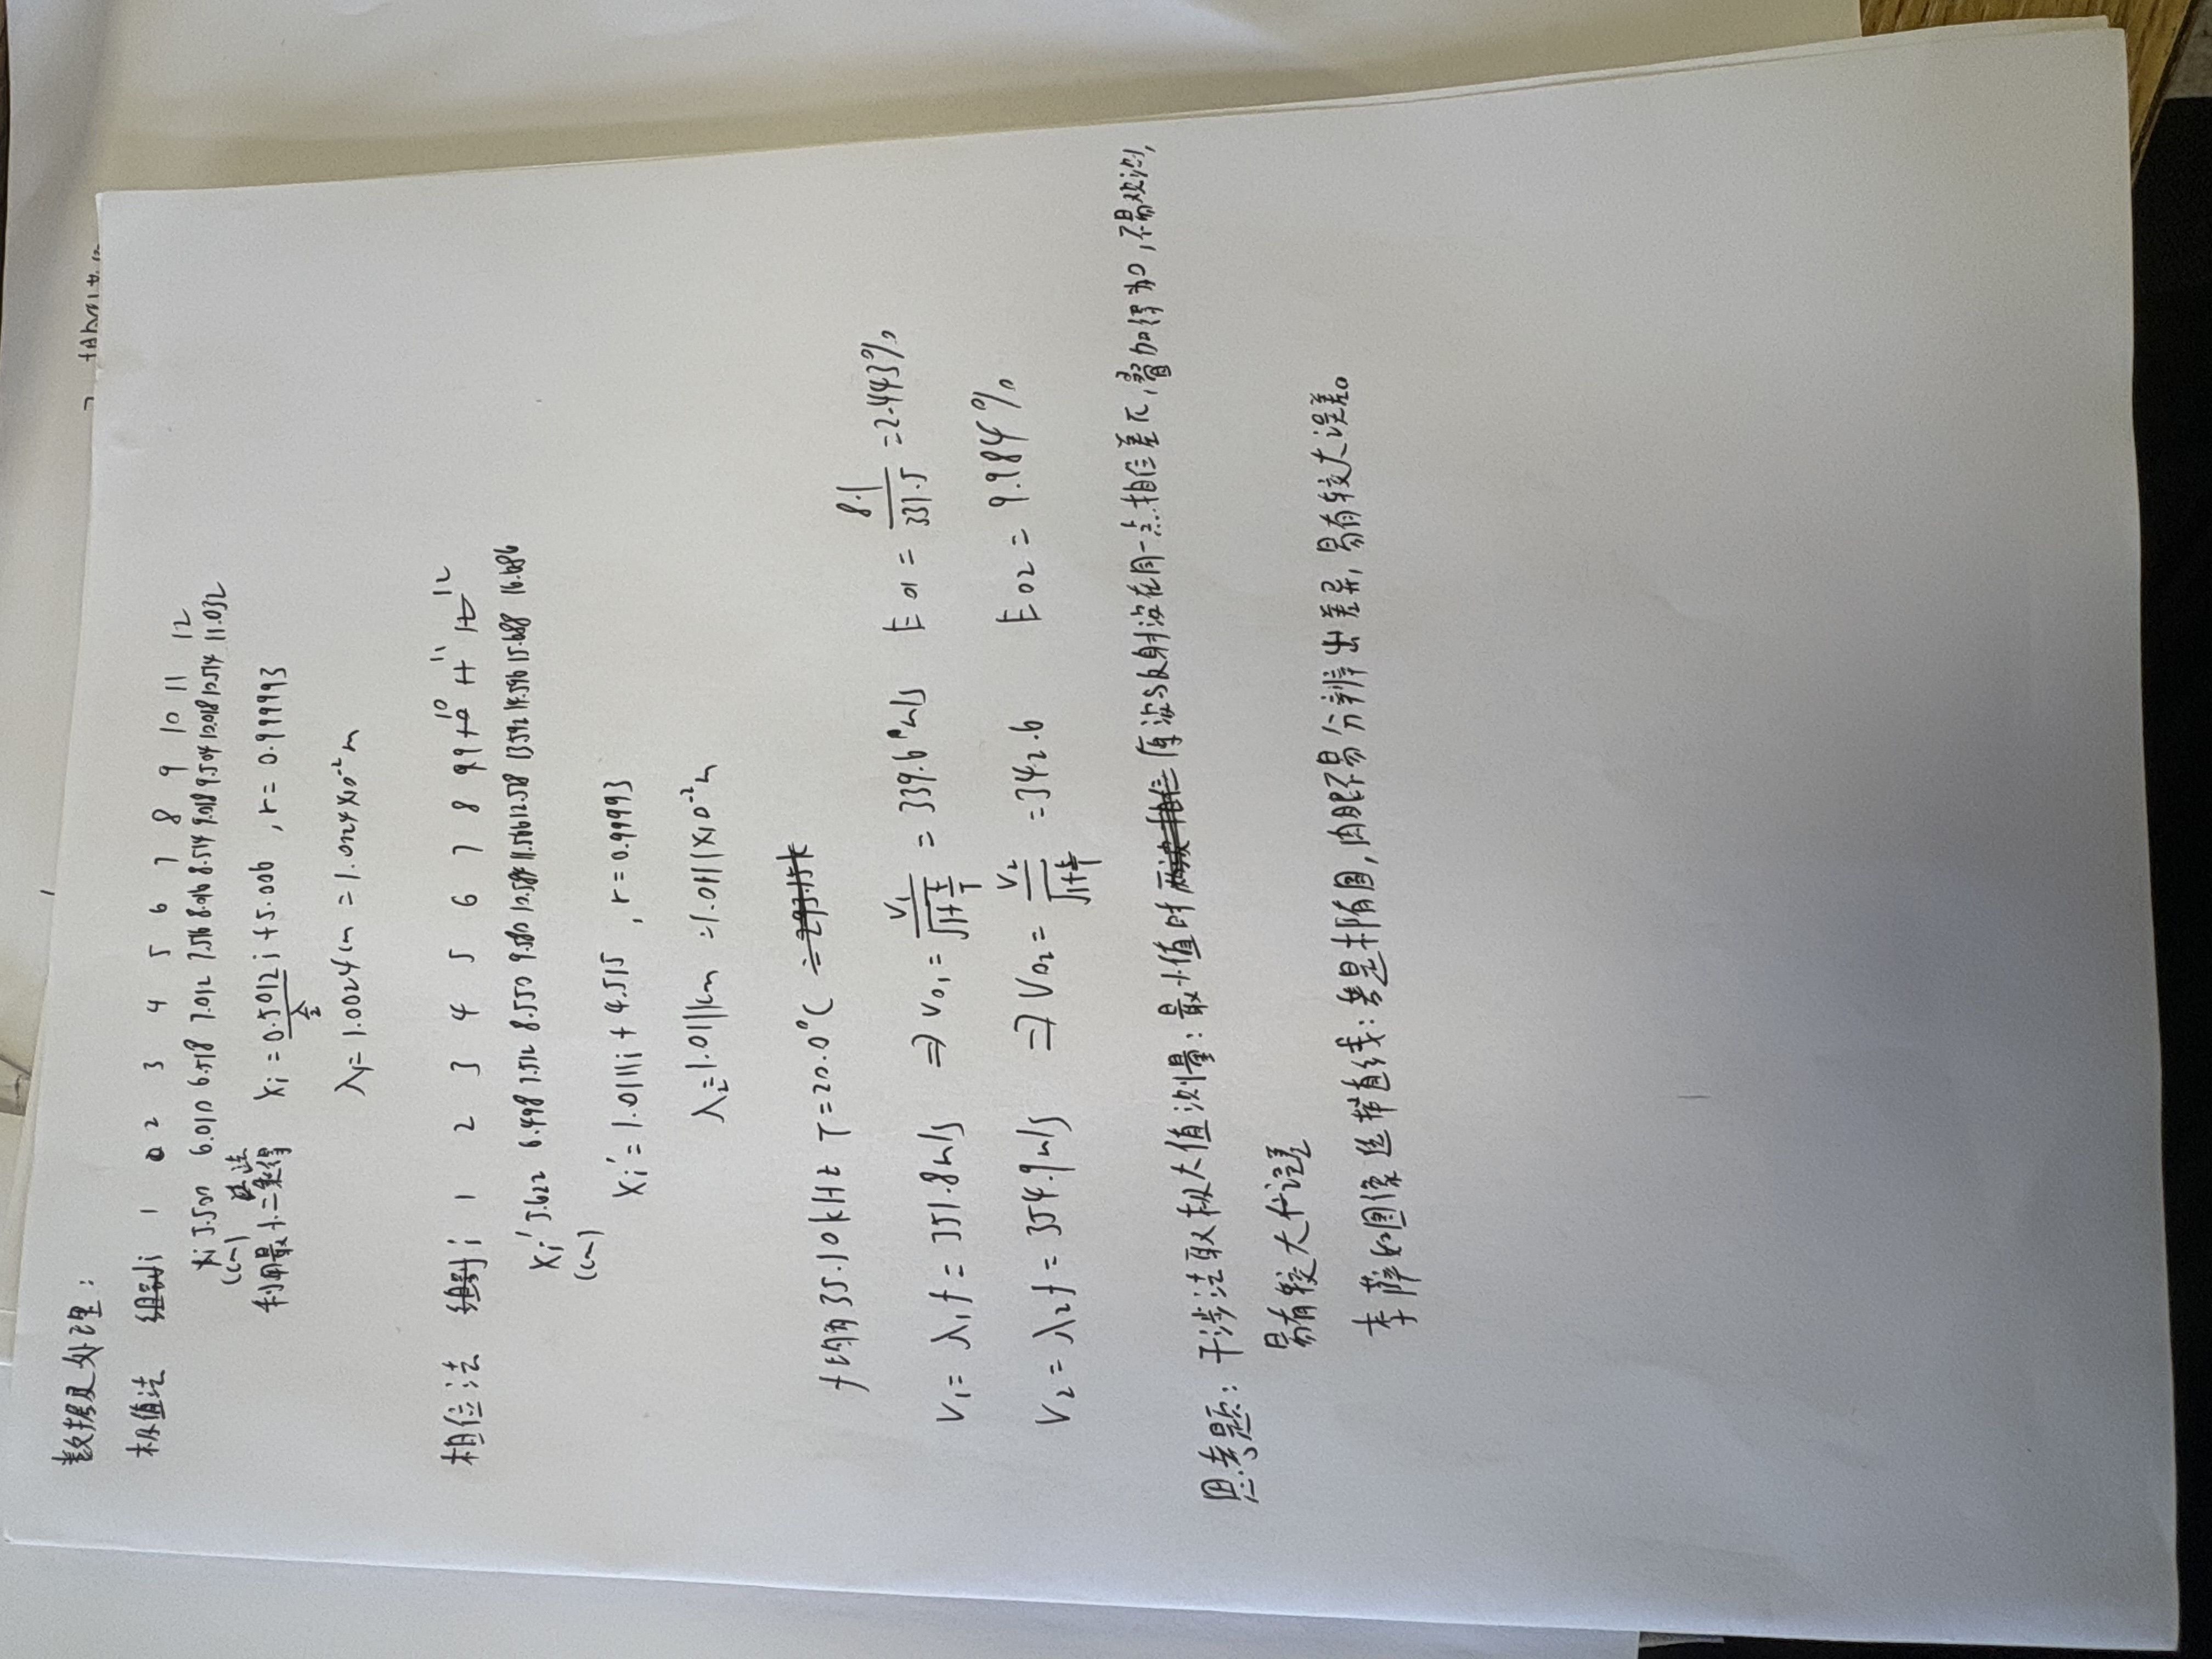 数据及处理：
极值法 i 1 2 3 4 5 6 7 8 9 10 11 12
xi 5.500 6.010 6.518 7.012 7.516 8.016 8.514 9.018 9.504 10.018 10.514 11.032
(cm)
利用最小二乘法得 xi = 0.5012i + 5.006 , r = 0.999993
λ/2
λ1 = 1.0024cm = 1.0024×10⁻²m
相位法 i 1 2 3 4 5 6 7 8 9 10 11 12
xi' 5.622 6.498 7.512 8.550 9.580 10.584 11.566 12.578 13.592 14.596 15.688 16.686
(cm)
xi' = 1.0111i + 4.515 , r = 0.99993
λ2 = 1.0111cm = 1.0111×10⁻²m
f均为35.10kHz T=20.0°C
V1 = λ1f = 351.8m/s ⇒ V01 = V1/√(1+t/T) = 339.6m/s E01 = 8.1/331.5 = 2.443%
V2 = λ2f = 354.9m/s ⇒ V02 = V2/√(1+t/T) = 342.6 E02 = 9.984%
思考题：干涉法取极大值测量：最小值时原波与反射波在同一点相位差π，叠加得为0，不易观测，
易有较大误差
李萨如图像选择直线：若是椭圆，肉眼不易分辨出差异，易有较大误差。